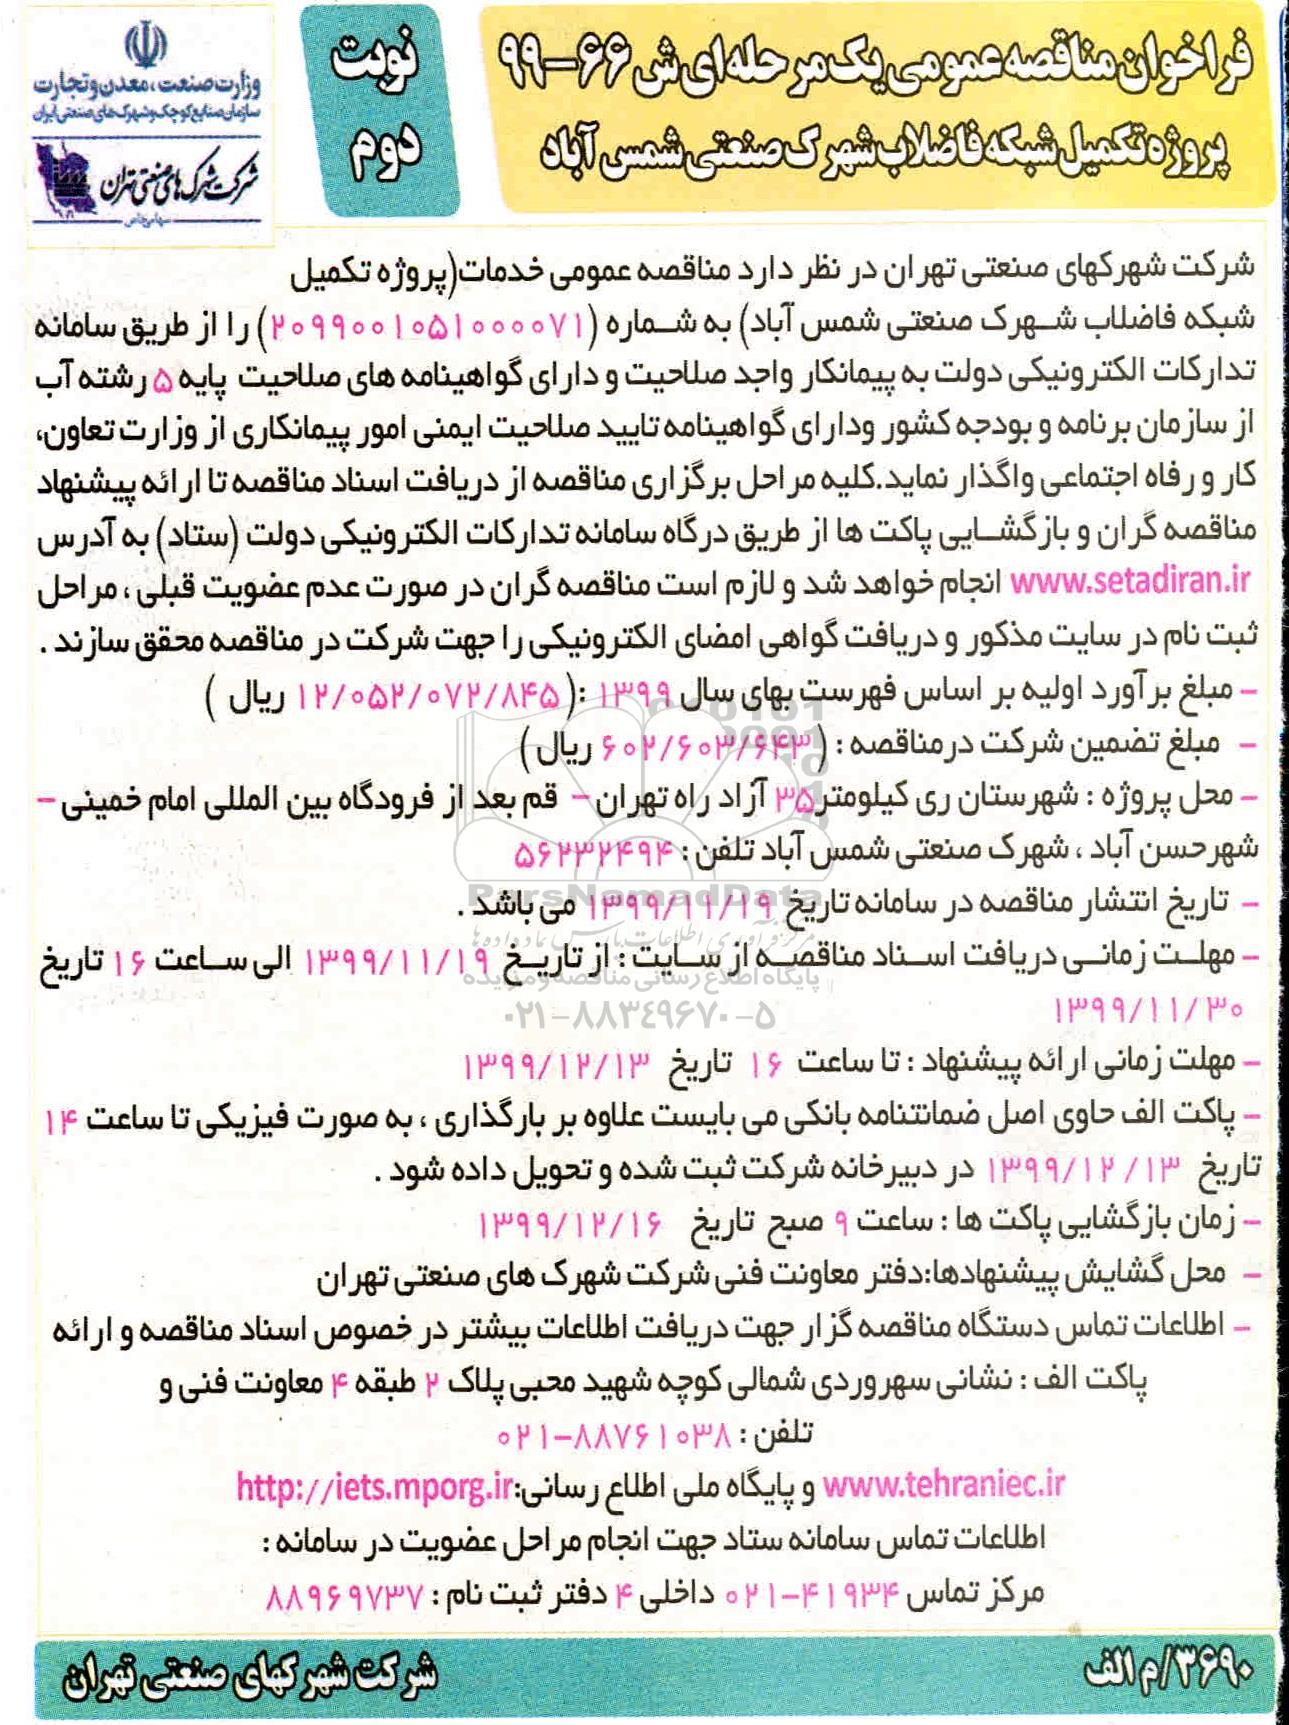 فراخوان مناقصه عمومی یک مرحله ای ش ۶۶-۹۹
پروژه تکمیل شبکه فاضلاب شهرک صنعتی شمس آباد
نوبت
دوم
وزارت صنعت، معدن و تجارت
سازمان صنایع کوچک و شهرک های صنعتی ایران
شرکت شهرک های صنعتی تهران
سهامی خاص
شرکت شهرکهای صنعتی تهران در نظر دارد مناقصه عمومی خدمات(پروژه تکمیل
شبکه فاضلاب شهرک صنعتی شمس آباد) به شماره (۲۰۹۹۰۰۱۰۵۱۰۰۰۰۷۱) را از طریق سامانه
تدارکات الکترونیکی دولت به پیمانکار واجد صلاحیت و دارای گواهینامه های صلاحیت پایه ۵ رشته آب
از سازمان برنامه و بودجه کشور ودارای گواهینامه تایید صلاحیت ایمنی امور پیمانکاری از وزارت تعاون،
کار و رفاه اجتماعی واگذار نماید.کلیه مراحل برگزاری مناقصه از دریافت اسناد مناقصه تا ارائه پیشنهاد
مناقصه گران و بازگشایی پاکت ها از طریق درگاه سامانه تدارکات الکترونیکی دولت (ستاد) به آدرس
www.setadiran.ir انجام خواهد شد و لازم است مناقصه گران در صورت عدم عضویت قبلی، مراحل
ثبت نام در سایت مذکور و دریافت گواهی امضای الکترونیکی را جهت شرکت در مناقصه محقق سازند .
- مبلغ برآورد اولیه بر اساس فهرست بهای سال ۱۳۹۹ :( ۱۲/۰۵۲/۰۷۲/۸۴۵ ریال )
- مبلغ تضمین شرکت درمناقصه : (۶۰۲/۶۰۳/۶۴۳ ریال)
- محل پروژه : شهرستان ری کیلومتر۳۵ آزاد راه تهران- قم بعد از فرودگاه بین المللی امام خمینی -
شهرحسن آباد ، شهرک صنعتی شمس آباد تلفن: ۵۶۲۳۲۴۹۴
ParsNamadData
- تاریخ انتشار مناقصه در سامانه تاریخ ۱۳۹۹/۱۱/۱۹ می باشد .
مرکز فرآوری اطلاعات پارس نماد داده ها
- مهلت زمانی دریافت اسناد مناقصه از سایت : از تاریخ ۱۳۹۹/۱۱/۱۹ الی ساعت ۱۶ تاریخ
پایگاه اطلاع رسانی مناقصه و مزایده
۱۳۹۹/۱۱/۳۰
۰۲۱-۸۸۳۴۹۶۷۰-۵
- مهلت زمانی ارائه پیشنهاد : تا ساعت ۱۶ تاریخ ۱۳۹۹/۱۲/۱۳
- پاکت الف حاوی اصل ضمانتنامه بانکی می بایست علاوه بر بارگذاری ، به صورت فیزیکی تا ساعت ۱۴
تاریخ ۱۳۹۹/۱۲/۱۳ در دبیرخانه شرکت ثبت شده و تحویل داده شود .
- زمان بازگشایی پاکت ها : ساعت ۹ صبح تاریخ ۱۳۹۹/۱۲/۱۶
- محل گشایش پیشنهادها:دفتر معاونت فنی شرکت شهرک های صنعتی تهران
- اطلاعات تماس دستگاه مناقصه گزار جهت دریافت اطلاعات بیشتر در خصوص اسناد مناقصه و ارائه
پاکت الف : نشانی سهروردی شمالی کوچه شهید محبی پلاک ۲ طبقه ۴ معاونت فنی و
تلفن : ۰۲۱-۸۸۷۶۱۰۳۸
www.tehraniec.ir و پایگاه ملی اطلاع رسانی:http://iets.mporg.ir
اطلاعات تماس سامانه ستاد جهت انجام مراحل عضویت در سامانه :
مرکز تماس ۰۲۱-۴۱۹۳۴ داخلی ۴ دفتر ثبت نام : ۸۸۹۶۹۷۳۷
۳۶۹۰/م الف
شرکت شهرکهای صنعتی تهران